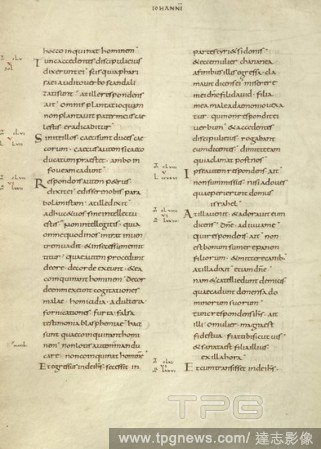 IOHANNI
hoc coinquinat hominem
Tunc accedentes discipuli eius
dixerunt ei scis quia phari
saei audito verbo scandali
zati sunt at ille respondens
ait omnis plantatio quam
non plantavit pater meus cae
lestis eradicabitur
Sinite illos caeci sunt duces cae
corum caecus autem si caeco
ducatum praestet ambo in
foveam cadunt
Respondens autem petrus
dixit ei edissere nobis para
bolam istam at ille dixit
adhuc & vos sine intellectu
estis non intellegitis quia
omne quod in os intrat in ven
trem vadit & in secessum emitti
tur quae autem procedunt
de ore de corde exeunt & ea
coinquinant hominem de cor
de enim exeunt cogitationes
malae homicidia adulteria
fornicationes furta falsa
testimonia blasphemiae haec
sunt quae coinquinant homi
nem non lotis autem manibus
manducare non coinquinat hominem
Et egressus inde ihs secessit in
partes tyri & sidonis
& ecce mulier chananea
a finibus illis egressa cla
mavit dicens ei miserere
mei dne fili david filia
mea male a daemonio vexa
tur qui non respondit ei
verbum & accedentes
discipuli eius rogabant
eum dicentes dimitte eam
quia clamat post nos
Ipse autem respondens ait
non sum missus nisi ad oves
quae perierunt domus
israhel
At illa venit & adoravit eum
dicens dne adiuva me
qui respondens ait non
est bonum sumere panem
filiorum & mittere canib;
at illa dixit etiam dne
nam & catelli edunt de micis
quae cadunt de mensa do
minorum suorum
tunc respondens ihs ait
illi o mulier magna est
fides tua fiat tibi sicut vis
& sanata est filia illius
ex illa hora
Et cum transisset inde ihs
TPG
www.tpgnews.com / 達志影像